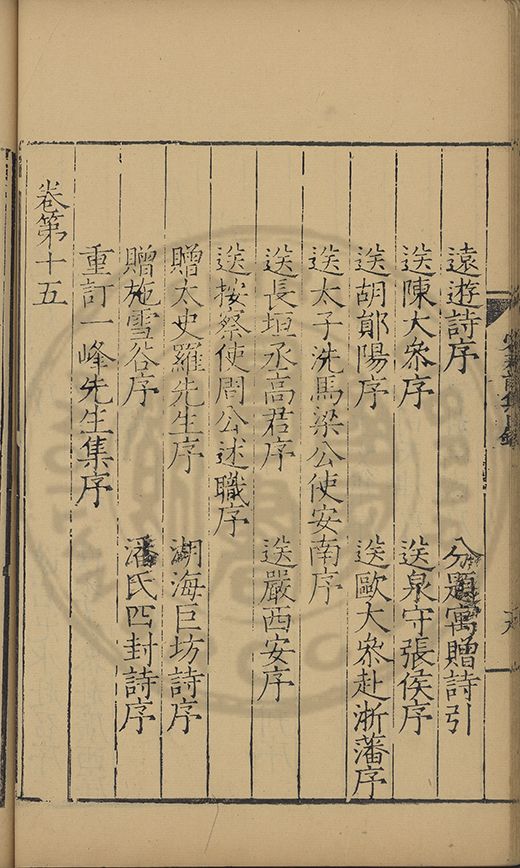 遠遊詩序 分題寓贈詩引
送陳大叅序 送泉守張侯序
送胡鄖陽序 送歐大叅赴浙藩序
送太子洗馬梁公使安南序
送長垣丞高君序 送嚴西安序
送按察使周公述職序
贈太史羅先生序 湖海巨坊詩序
贈施雪谷序 潘氏四封詩序
重訂一峰先生集序
卷第十五